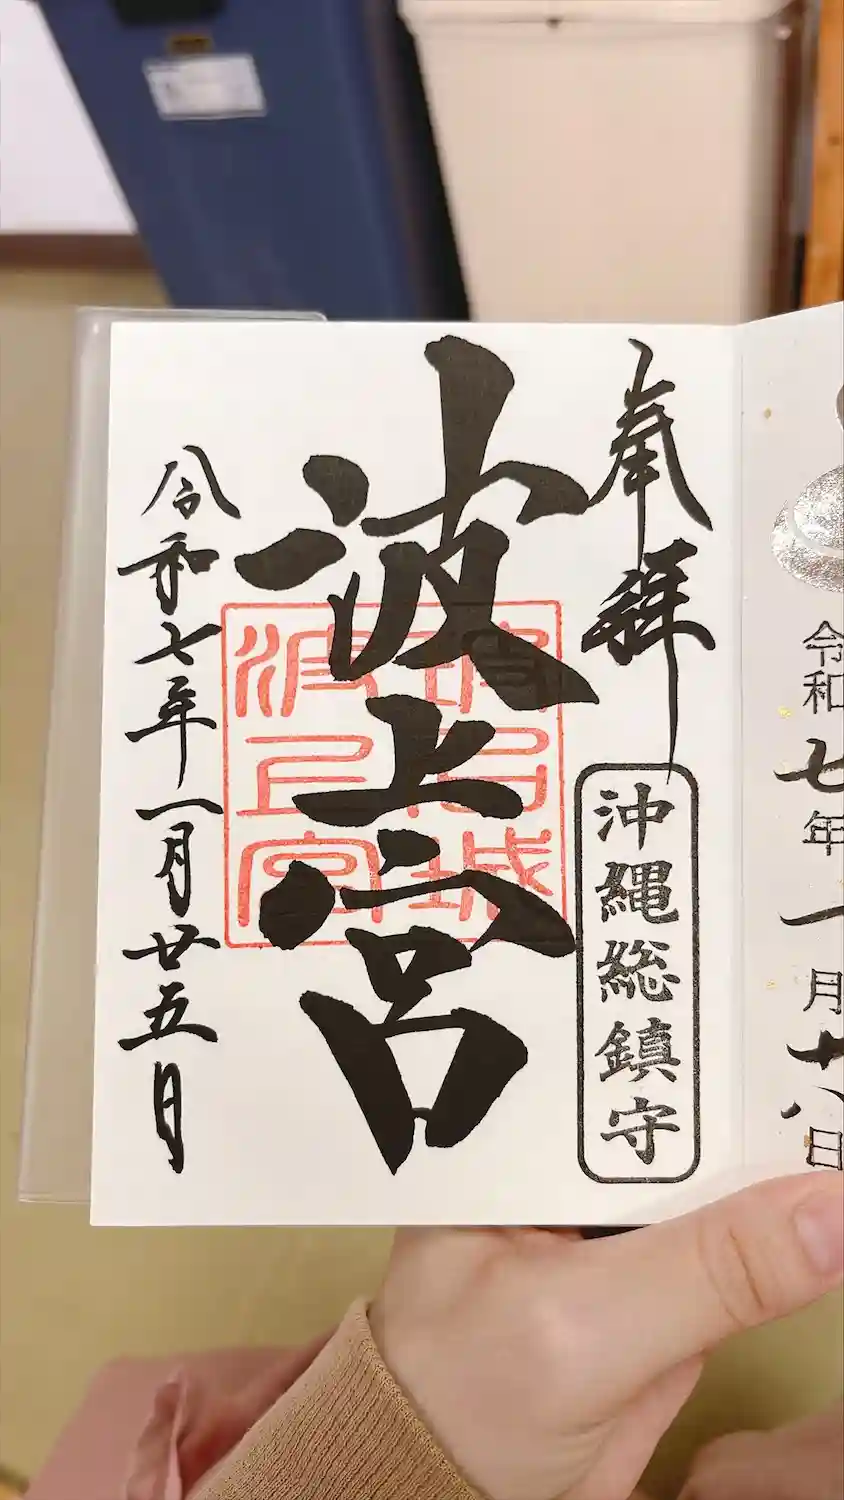 令和七年一月十八日
奉拝
沖縄総鎮守
波上宮
波上宮
令和七年一月廿五日